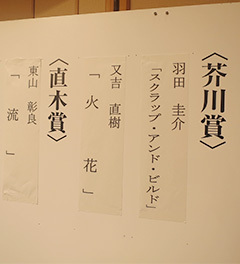 〈芥川賞〉
羽田 圭介
「スクラップ・アンド・ビルド」
又吉 直樹
「火花」
〈直木賞〉
東山 彰良
「流」